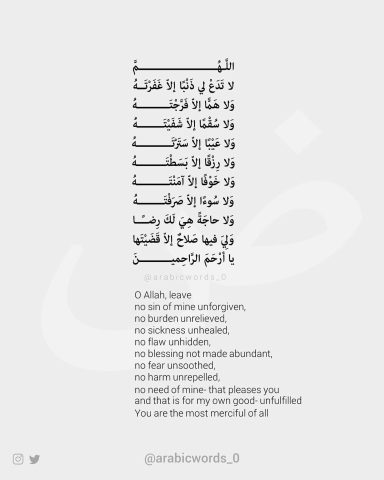 اللَّـهُـــــــــــــــــــــمَّ
لا تَدَعْ لي ذَنْبًا إلاّ غَفَرْتَـــهُ
وَلا هَمًّا إلاّ فَرَّجْتَـــــــــهُ
وَلا سُقْمًا إلاّ شَفَيْتَــــــــهُ
وَلا عَيْبًا إلاّ سَتَرْتَـــــــــهُ
وَلا رِزْقًا إلاّ بَسَطْتَـــــــهُ
وَلا خَوْفًا إلاّ آمَنْتَــــــــــهُ
وَلا سُوءًا إلاّ صَرَفْتَـــــــهُ
وَلا حاجَةً هِيَ لَكَ رِضـًــا
وَلِيَ فيها صَلاحٌ إلاّ قَضَيْتَها
يا أَرْحَمَ الرَّاحِميـــــــــــنَ
@arabicwords_0
O Allah, leave
no sin of mine unforgiven,
no burden unrelieved,
no sickness unhealed,
no flaw unhidden,
no blessing not made abundant,
no fear unsoothed,
no harm unrepelled,
no need of mine- that pleases you
and that is for my own good- unfulfilled
You are the most merciful of all
@arabicwords_0
ض